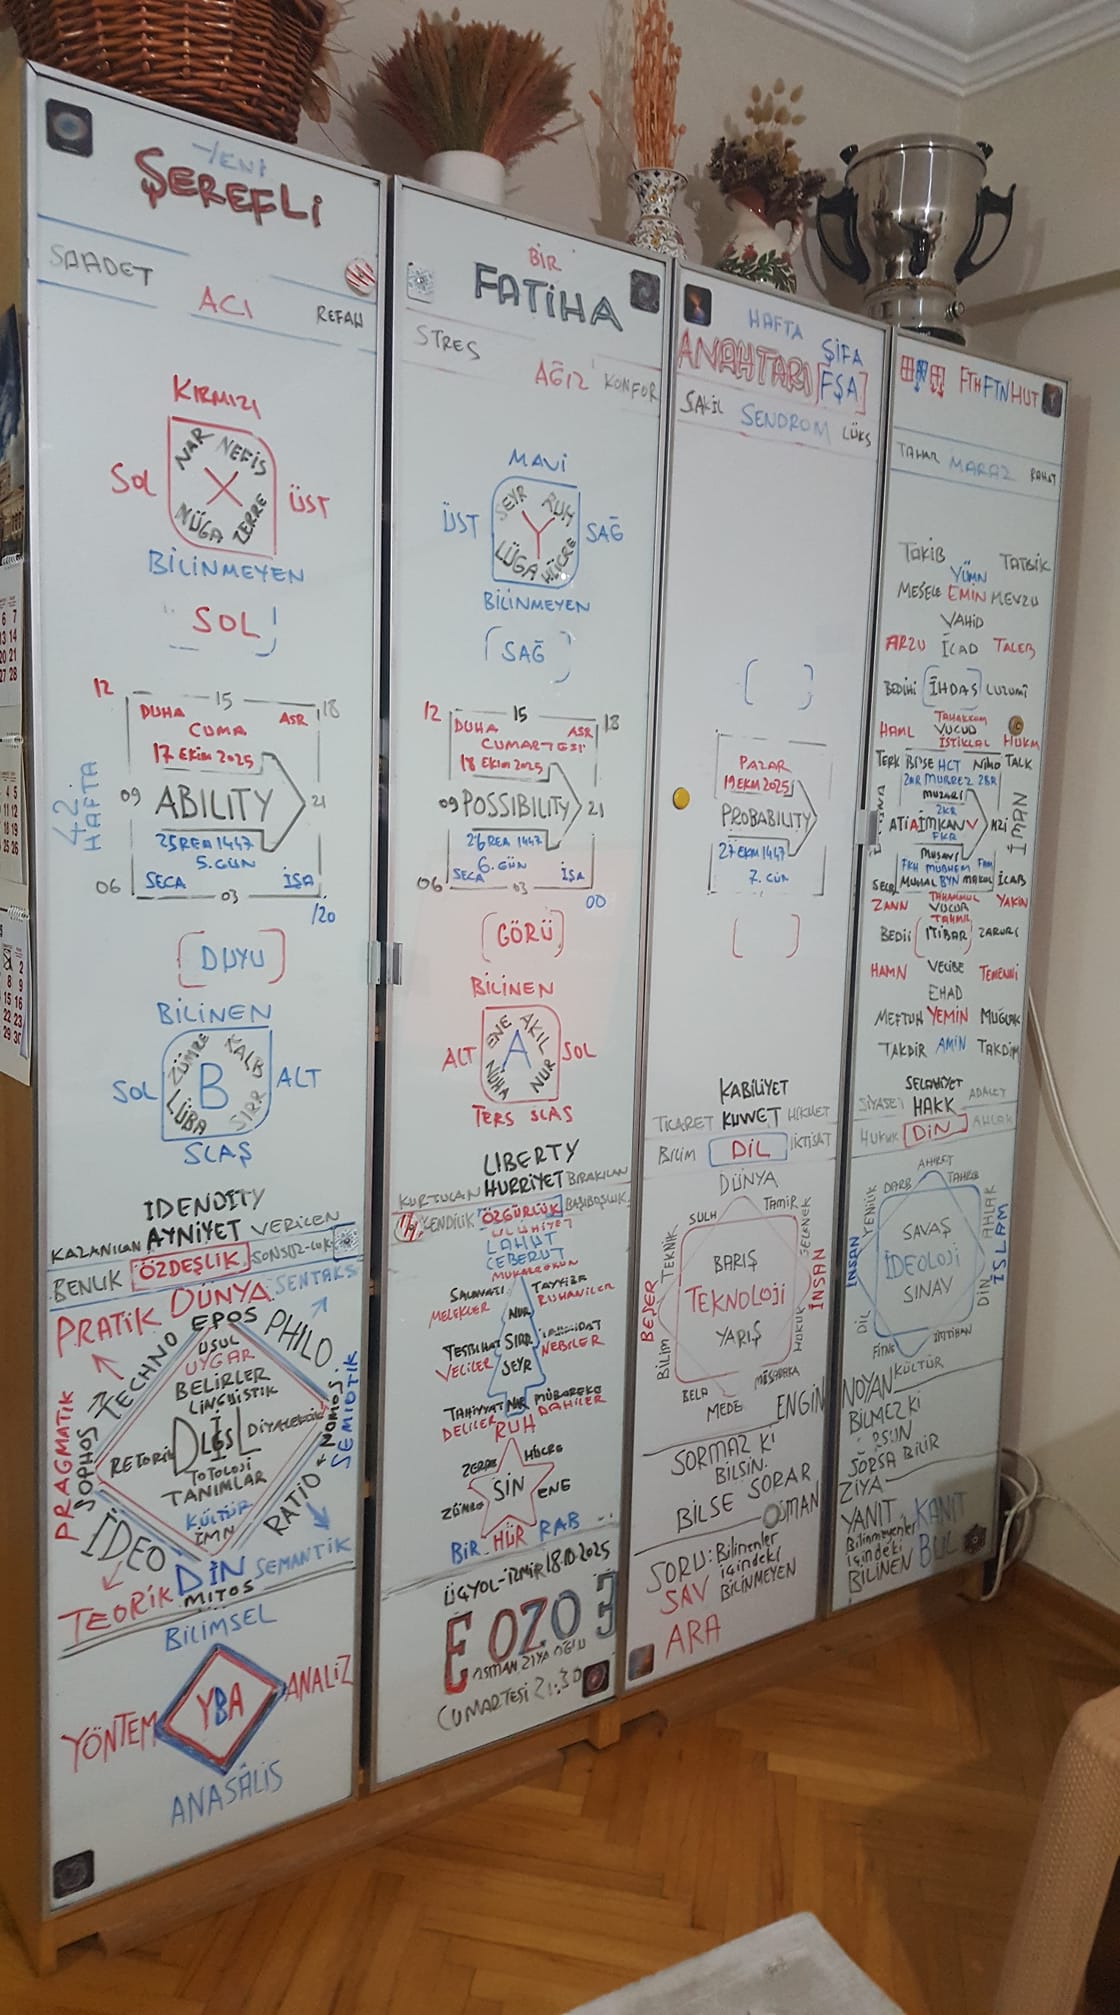 YENİ
ŞEREFLİ
SAADET
ACI
REFAH
KIRMIZI
NAR NEFİS
SOL X ÜST
NÜGA ZERRE
BİLİNMEYEN
SOL
12 15 18
DUHA ASR
CUMA
17 EKİM 2025
42. HAFTA
09 ABILITY 21
25 REA 1447
5. GÜN
06 SECA İŞA
03
/20
[DUYU]
BİLİNEN
ZÜMRE KALB
SOL B ALT
LÜBA SIRR
SLAŞ
IDENDITY
KAZANILAN AYNİYET VERİLEN
BENLİK ÖZDEŞLİK
PRATİK DÜNYA SENTAKS
TECHNO EPOS PHILO
USUL
UYGAR
BELİRLER
LİNGÜİSTİK
PRAGMATİK SOPHOS RETORİK DİL DİYALEKTİK NOMOS SEMİOTİK
TOTOLOJİ
TANIMLAR
KÜLTÜR
İMN
İDEO RATIO
DİN SEMANTİK
TEORİK MİTOS
BİLİMSEL
YÖNTEM YBA ANALİZ
ANASÂLİS
BİR
FATİHA
STRES
AĞIZ KONFOR
MAVİ
SEYR RUH
ÜST Y SAĞ
LÜGA HÜCRE
BİLİNMEYEN
[SAĞ]
12 15 18
DUHA ASR
CUMARTESİ
18 EKİM 2025
09 POSSIBILITY 21
26 REA 1447
6. GÜN
SECA İŞA
06 03
00
[GÖRÜ]
BİLİNEN
ENE AKIL
ALT A SOL
NUHA NUR
TERS SLAŞ
LIBERTY
KURTULAN HURRİYET BIRAKILAN
KENDİLİK ÖZGÜRLÜK BAŞIBOŞLUK
ULUHİYET
LAHUT
CEBERUT
SALAVATI TAYYİBE
MELEKLER NUR RUHANİLER
TESBİHAT SIRR
VELİLER NEBİLER
SEYR
TAHİYYAT NAR MÜBAREKE
DELİLER DAHİLER
RUH
ZERRE HÜCRE
SİN
ZÜMRE ENE
BİR HÜR RAB
ÜÇYOL-İZMİR 18.10.2025
E OZO E
OSMAN ZİYA OĞLU
CUMARTESİ 21:30
HAFTA
ŞİFA
ANAHTARI [FŞA]
SAKİL SENDROM LÜKS
[ ]
PAZAR
19 EKM 2025
PROBABILITY
27 EKM 1447
7. GÜN
[ ]
KABİLİYET
TİCARET KUVVET HİKMET
BİLİM DİL İKTİSAT
DÜNYA
SULH TAMİR
TEKNİK GELENEK
BARIŞ
BEŞER TEKNOLOJİ İNSAN
YARIŞ
BİLİM HUKUK
BELA MÜSABAKA
MEDE
ENGİN
SORMAZ Kİ
BİLSİN.
BİLSE SORAR
OSMAN
SORU: Bilinenler
içindeki
SAV BİLİNMEYEN
ARA
FTHFTNHUT
TAHAR MARAZ RAHAT
TAKİB TATBİK
YÜMN
MESELE EMİN MEVZU
VAHİD
ARZU İCAD TALEB
BEDİHİ [İHDAS] LUZUMİ
TAHAKKUM
HAML VUCUD HUKM
İSTİKLAL
TERK TALK
İMAN
İCAB
ZANN VUCUB YAKİN
TAHMİL
BEDİİ [İTİBAR] ZARURİ
HAMN VECİBE TEMENNİ
EHAD
MEFTUN YEMİN MUĞLAK
TAKDİR AMİN TAKDİM
SELAHİYET
SİYASET HAKK ADALET
HUKUK DİN AHLAK
AHİRET
DARB TAHRİB
YENİLİK AHLAK
SAVAŞ
İNSAN İDEOLOJİ İSLAM
SINAY
DİL DİN
FİTNE İMTİHAN
KÜLTÜR
NOYAN
BİLMEZ Kİ
SORSUN
SORSA BİLİR
ZİYA
YANIT KANIT
Bilinmeyenler
içindeki
BİLİNEN BUL